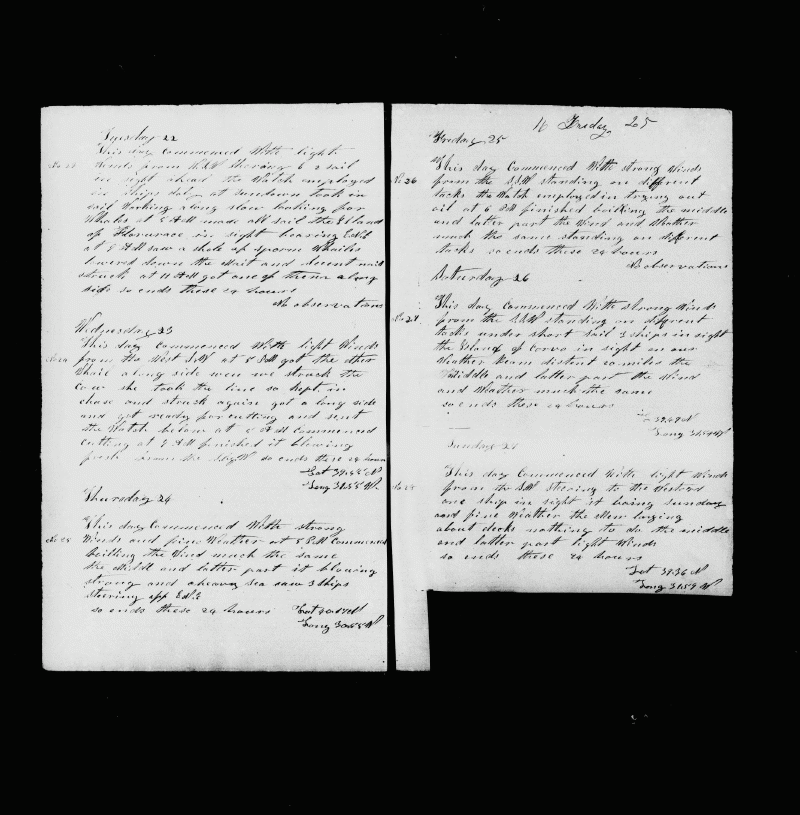 Tuesday 22
This day Commenced With light
Winds from S.S.W Steering E 2 sail
in sight ahead the Watch employed
in ships duty at sundown took in
sail Working along slow looking for
Whales at 5 AM made all sail the Island
of Floriuace in sight bearing
at 9 AM saw a shole of sperm Whailes
lowered down the and
struck at 11 AM got one of them along
side so ends these 24 hours
No observations
Wednesday 23
This day Commenced With light Winds
from the West S.W at 5 PM got the other
Whail along side wen we struck the
Cow she took the line so kept in
chase and struck again got a long side
and got ready for cutting and sent
the Watch below at 5 AM Commenced
cutting at 9 AM finished it blowing
fresh from the so ends these 24 hours
Lat 39.55 N
Long 31.55 W
Thursday 24
No 25
This day Commenced With strong
Winds and fine Weather at 8 PM Commenced
boilling the Wind much the same
the Middle and latter part it blowing
strong and a heavy sea saw 3 ships
steering off E.N.E
so ends these 24 hours
Long 30.55 W
16 Friday 25
Friday 25
No 26
This day Commenced With strong Winds
from the S.S.W standing on different
tacks the Watch employed in trying out
oil at 6 PM finished boilling the middle
and latter part the Wind and Weather
much the same standing on different
tacks so ends these 24 hours
No observations
Saturday 26
No 27
This day Commenced With strong Winds
from the S.S.W standing on different
tacks under short sail 3 ships in sight
the Island of Corvo in sight in our
Weather Beam distent 20 miles the
Middle and latter part the Wind
and Weather much the same
so ends these 24 hours
39.49 N
Long 31.54 W
Sunday 27
No 28
This day Commenced With light Winds
from the S.W steering to the Westward
one ship in sight it being sunday
and fine Weather the Men laying
about decks nothing to do the middle
and latter part light Winds
so ends these 24 hours
Lat 39.36 N
Long 31.59 W